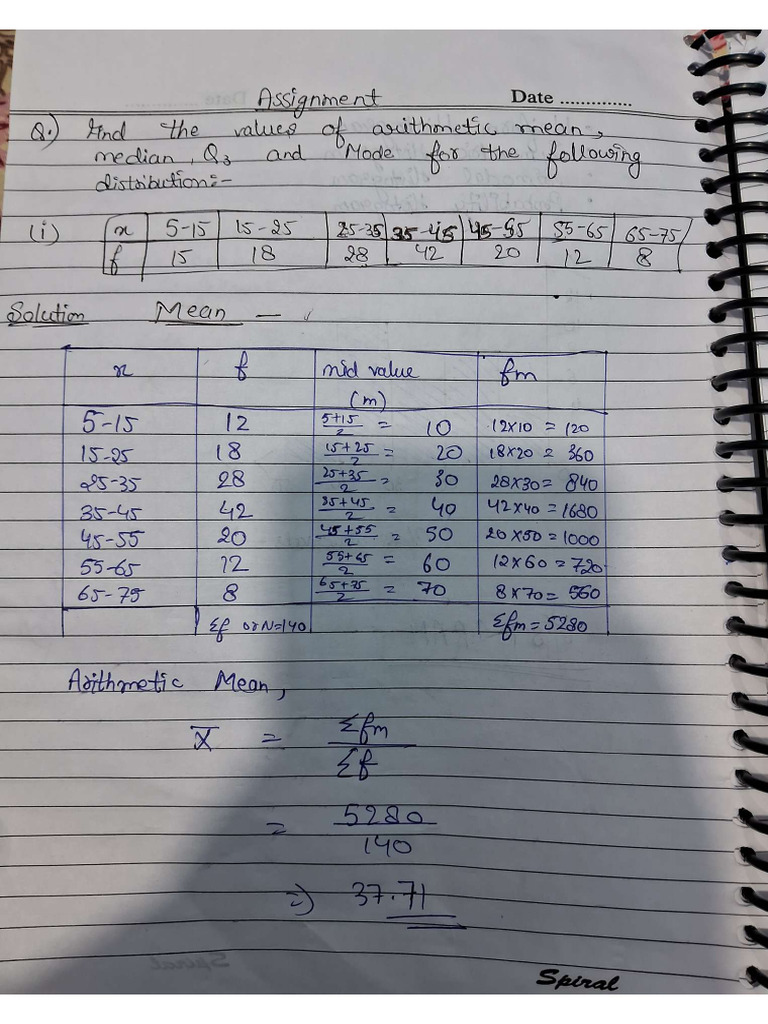 Assignment Date ..............
Q.) Find the values of arithmetic mean,
median, Q3 and Mode for the following
distribution:-
(i) x 5-15 15-25 25-35 35-45 45-55 55-65 65-75
f 15 18 28 42 20 12 8
Solution Mean —
x f mid value (m) fm
5-15 12 5+15/2 = 10 12x10 = 120
15-25 18 15+25/2 = 20 18x20 = 360
25-35 28 25+35/2 = 30 28x30 = 840
35-45 42 35+45/2 = 40 42x40 = 1680
45-55 20 45+55/2 = 50 20x50 = 1000
55-65 12 55+65/2 = 60 12x60 = 720
65-75 8 65+75/2 = 70 8x70 = 560
Σf or N=140 Σfm = 5280
Arithmetic Mean,
X̄ = Σfm/Σf
= 5280/140
=) 37.71
Spiral